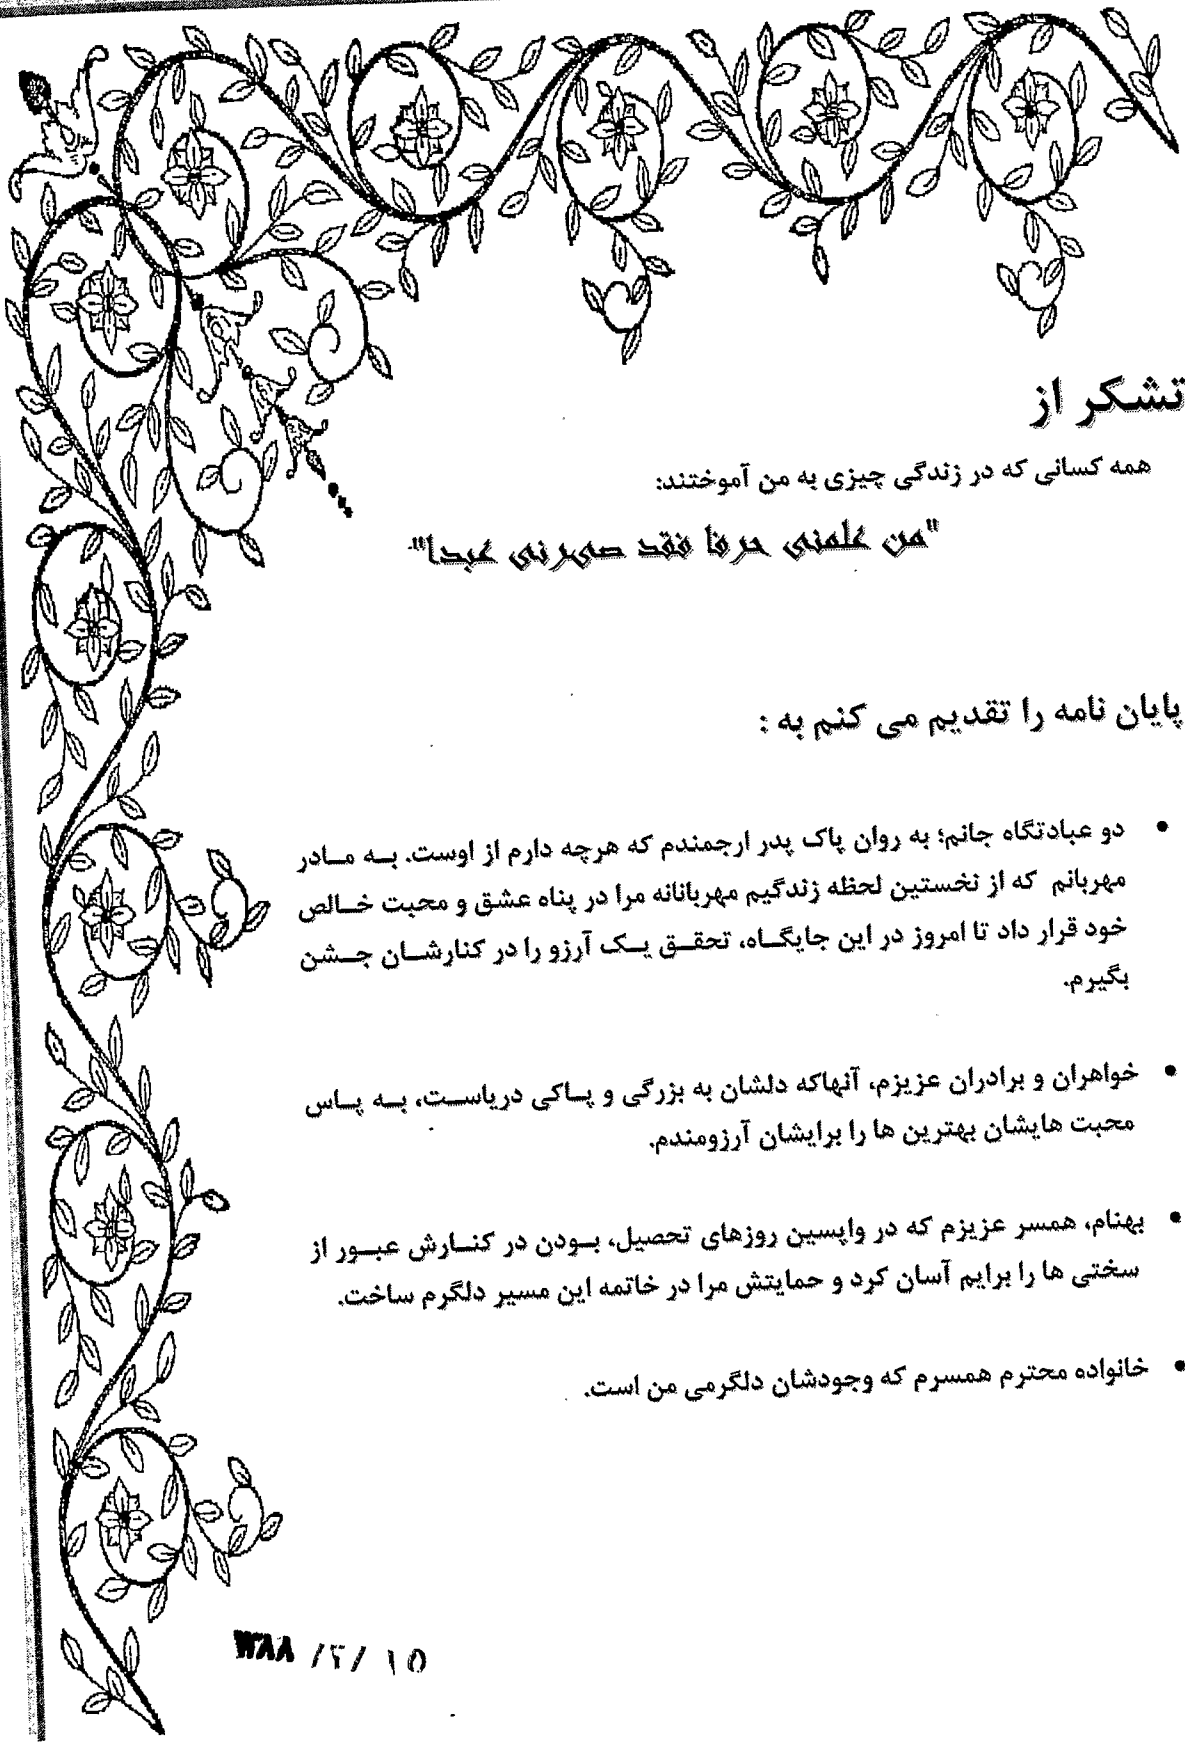 تشکر از
همه کسانی که در زندگی چیزی به من آموختند:
"من علمنی حرفا فقد صیرنی عبدا"
پایان نامه را تقدیم می کنم به :
• دو عبادتگاه جانم؛ به روان پاک پدر ارجمندم که هرچه دارم از اوست. به مادر
مهربانم که از نخستین لحظه زندگیم مهربانانه مرا در پناه عشق و محبت خالص
خود قرار داد تا امروز در این جایگاه، تحقق یک آرزو را در کنارشان جشن
بگیرم.
• خواهران و برادران عزیزم، آنهاکه دلشان به بزرگی و پاکی دریاست، به پاس
محبت هایشان بهترین ها را برایشان آرزومندم.
• بهنام، همسر عزیزم که در واپسین روزهای تحصیل، بودن در کنارش عبور از
سختی ها را برایم آسان کرد و حمایتش مرا در خاتمه این مسیر دلگرم ساخت.
• خانواده محترم همسرم که وجودشان دلگرمی من است.